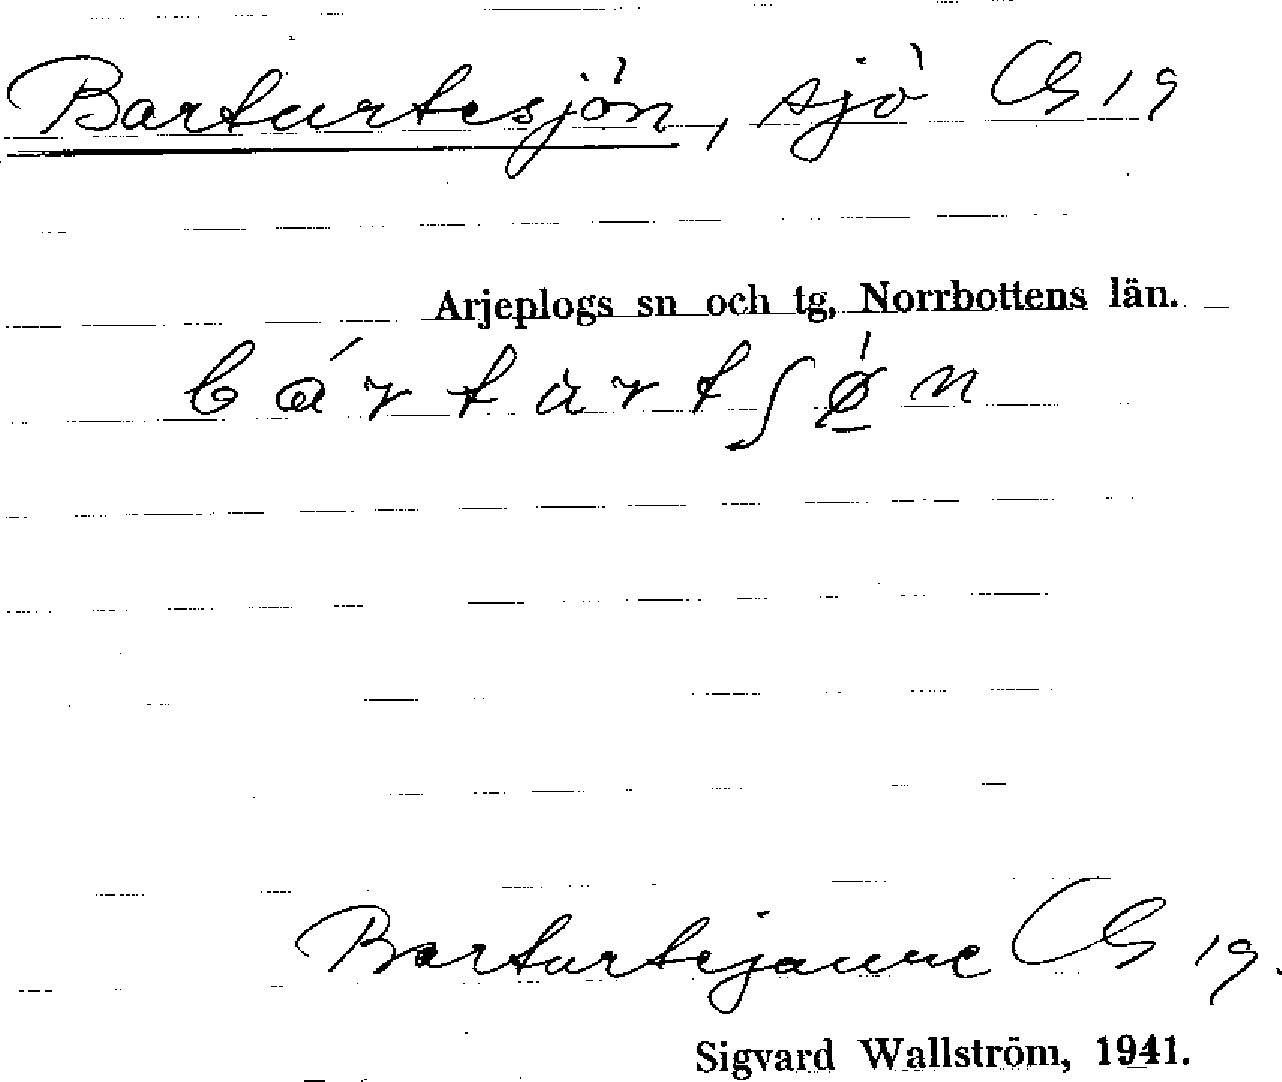 Bartartesjön, sjö Cb 19
Arjeplogs sn och tg, Norrbottens län.
bártàrtʃø̀n
Bartartejaure Cb 19.
Sigvard Wallström, 1941.